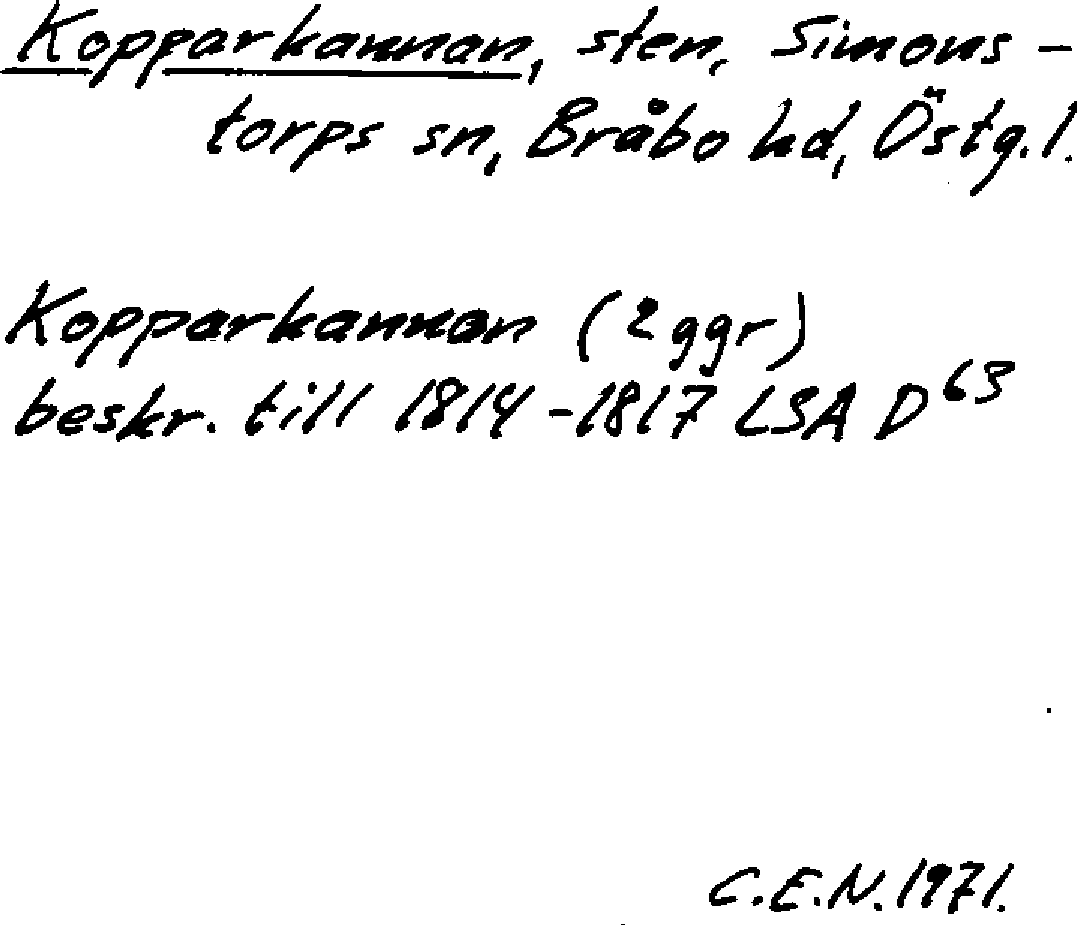 Kopparkannan, sten, Simons-
torps sn, Bråbo hd, Östg.l.
Kopparkannan (2 ggr)
beskr. till 1814-1817 LSA D 63
C.E.N. 1971.